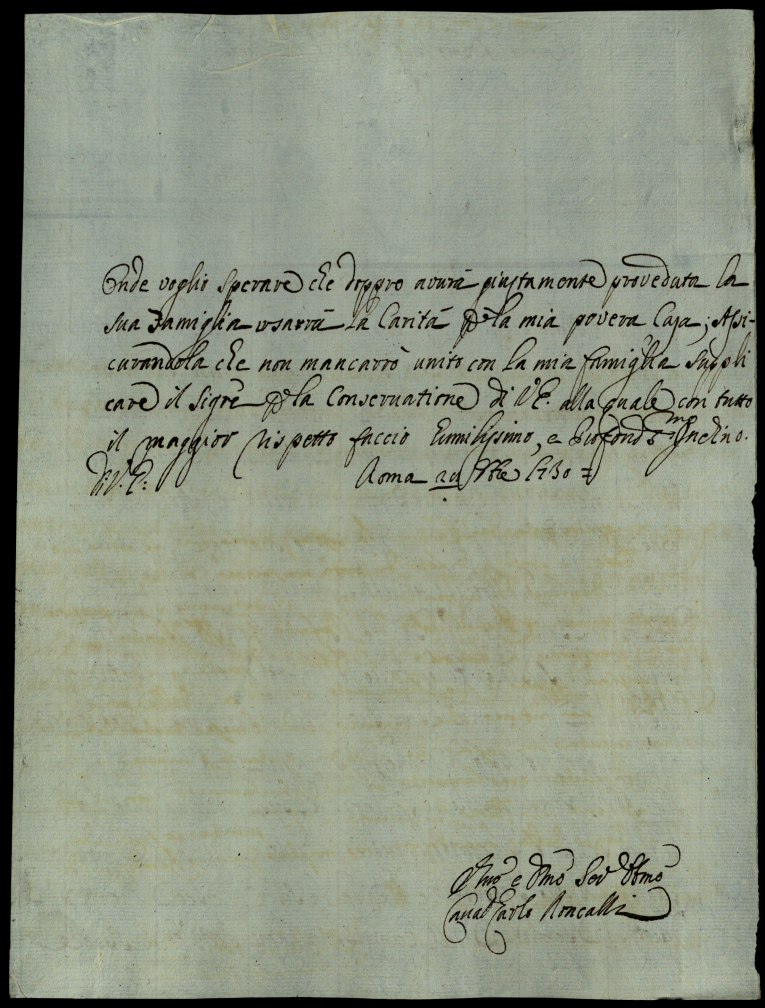 Onde voglio sperare che doppo avurà giustamente proveduta la
sua Famiglia usarrà la Carità p la mia povera Casa; Assi-
curandola che non mancarrò unito con la mia famiglia suppli
care il Sigre p la Conservatione di V. E. alla quale con tutto
il maggior rispetto faccio humilissimo, e profondmo Inchino.
Di V. E.: Roma 20 1730 =
e Dmo Ser Obmo
Cavad Carlo Roncalli